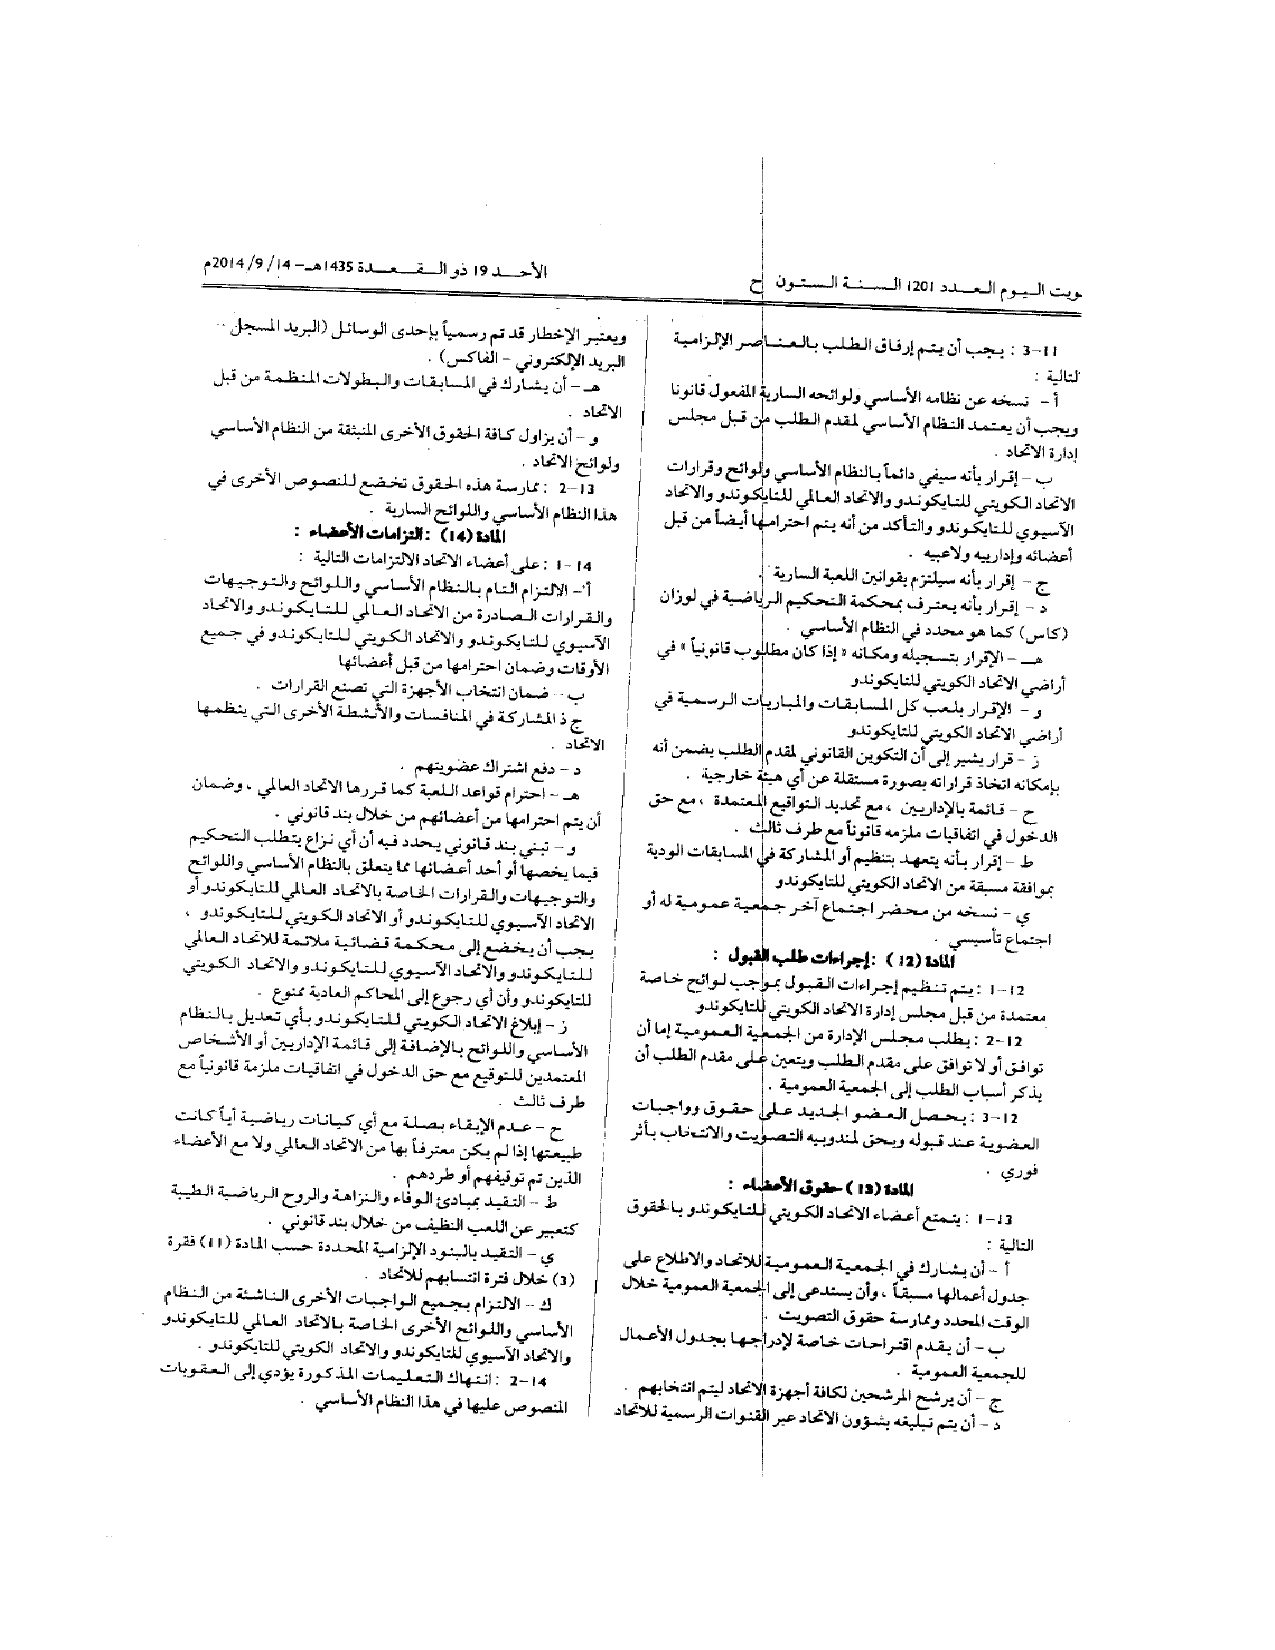 ويت اليوم العدد 1201 السنة الستون ح
الأحد 19 ذو القعدة 1435هـ - 14/ 9/ 2014م
11-3 : يجب أن يتم إرفاق الطلب بالعناصر الإلزامية
لتالية :
أ - نسخه عن نظامه الأساسي ولوائحه السارية المفعول قانونا
ويجب أن يعتمد النظام الأساسي لمقدم الطلب من قبل مجلس
إدارة الاتحاد .
ب - إقرار بأنه سيفي دائماً بالنظام الأساسي ولوائح وقرارات
الاتحاد الكويتي للتايكوندو والاتحاد العالمي للتايكوندو والاتحاد
الآسيوي للتايكوندو والتأكد من أنه يتم احترامها أيضاً من قبل
أعضائه وإدارييه ولاعبيه .
ج - إقرار بأنه سيلتزم بقوانين اللعبة السارية .
د - إقرار بأنه يعترف بمحكمة التحكيم الرياضية في لوزان
(كاس) كما هو محدد في النظام الأساسي .
هـ - الإقرار بتسجيله ومكانه « إذا كان مطلوب قانونياً » في
أراضي الاتحاد الكويتي للتايكوندو
و - الإقرار بلعب كل المسابقات والمباريات الرسمية في
أراضي الاتحاد الكويتي للتايكوندو
ز - قرار يشير إلى أن التكوين القانوني لمقدم الطلب يضمن أنه
بإمكانه اتخاذ قراراته بصورة مستقلة عن أي هيئة خارجية .
ح - قائمة بالإداريين ، مع تحديد التواقيع المعتمدة ، مع حق
الدخول في اتفاقيات ملزمه قانوناً مع طرف ثالث .
ط - إقرار بأنه يتعهد بتنظيم أو المشاركة في المسابقات الودية
بموافقة مسبقة من الاتحاد الكويتي للتايكوندو
ي - نسخه من محضر اجتماع آخر جمعية عمومية له أو
اجتماع تأسيسي .
المادة (12) : إجراءات طلب القبول :
12-1 : يتم تنظيم إجراءات القبول بموجب لوائح خاصة
معتمدة من قبل مجلس إدارة الاتحاد الكويتي للتايكوندو
12-2 : يطلب مجلس الإدارة من الجمعية العمومية إما أن
توافق أو لا توافق على مقدم الطلب ويتعين على مقدم الطلب أن
يذكر أسباب الطلب إلى الجمعية العمومية .
12-3 : يحصل العضو الجديد على حقوق وواجبات
العضوية عند قبوله ويحق لمندوبيه التصويت والانتخاب بأثر
فوري .
المادة (13) حقوق الأعضاء :
13-1 : يتمتع أعضاء الاتحاد الكويتي للتايكوندو بالحقوق
التالية :
أ - أن يشارك في الجمعية العمومية للاتحاد والاطلاع على
جدول أعمالها مسبقاً ، وأن يستدعى إلى الجمعية العمومية خلال
الوقت المحدد وممارسة حقوق التصويت .
ب - أن يقدم اقتراحات خاصة لإدراجها بجدول الأعمال
للجمعية العمومية .
ج - أن يرشح المرشحين لكافة أجهزة الاتحاد ليتم انتخابهم .
د - أن يتم تبليغه بشؤون الاتحاد عبر القنوات الرسمية للاتحاد
ويعتبر الإخطار قد تم رسمياً بإحدى الوسائل (البريد المسجل -
البريد الإلكتروني - الفاكس) .
هـ - أن يشارك في المسابقات والبطولات المنظمة من قبل
الاتحاد .
و - أن يزاول كافة الحقوق الأخرى المنبثقة من النظام الأساسي
ولوائح الاتحاد .
13-2 : ممارسة هذه الحقوق تخضع للنصوص الأخرى في
هذا النظام الأساسي واللوائح السارية .
المادة (14) : التزامات الأعضاء :
14-1 : على أعضاء الاتحاد الالتزامات التالية :
أ - الالتزام التام بالنظام الأساسي واللوائح والتوجيهات
والقرارات الصادرة من الاتحاد العالمي للتايكوندو والاتحاد
الآسيوي للتايكوندو والاتحاد الكويتي للتايكوندو في جميع
الأوقات وضمان احترامها من قبل أعضائها
ب - ضمان انتخاب الأجهزة التي تصنع القرارات .
ج ذ المشاركة في المنافسات والأنشطة الأخرى التي ينظمها
الاتحاد .
د - دفع اشتراك عضويتهم .
هـ - احترام قواعد اللعبة كما قررها الاتحاد العالمي ، وضمان
أن يتم احترامها من أعضائهم من خلال بند قانوني .
و - تبني بند قانوني يحدد فيه أن أي نزاع يتطلب التحكيم
فيما يخصها أو أحد أعضائها مما يتعلق بالنظام الأساسي واللوائح
والتوجيهات والقرارات الخاصة بالاتحاد العالمي للتايكوندو أو
الاتحاد الآسيوي للتايكوندو أو الاتحاد الكويتي للتايكوندو ،
يجب أن يخضع إلى محكمة قضائية ملائمة للاتحاد العالمي
للتايكوندو والاتحاد الآسيوي للتايكوندو والاتحاد الكويتي
للتايكوندو وأن أي رجوع إلى المحاكم العادية ممنوع .
ز - إبلاغ الاتحاد الكويتي للتايكوندو بأي تعديل بالنظام
الأساسي واللوائح بالإضافة إلى قائمة الإداريين أو الأشخاص
المعتمدين للتوقيع مع حق الدخول في اتفاقيات ملزمة قانونياً مع
طرف ثالث .
ح - عدم الإبقاء بصلة مع أي كيانات رياضية أياً كانت
طبيعتها إذا لم يكن معترفاً بها من الاتحاد العالمي ولا مع الأعضاء
الذين تم توقيفهم أو طردهم .
ط - التقيد بمبادئ الوفاء والنزاهة والروح الرياضية الطيبة
كتعبير عن اللعب النظيف من خلال بند قانوني .
ي - التقيد بالبنود الإلزامية المحددة حسب المادة (11) فقرة
(3) خلال فترة انتسابهم للاتحاد .
ك - الالتزام بجميع الواجبات الأخرى الناشئة من النظام
الأساسي واللوائح الأخرى الخاصة بالاتحاد العالمي للتايكوندو
والاتحاد الآسيوي للتايكوندو والاتحاد الكويتي للتايكوندو .
14-2 : انتهاك التعليمات المذكورة يؤدي إلى العقوبات
المنصوص عليها في هذا النظام الأساسي .